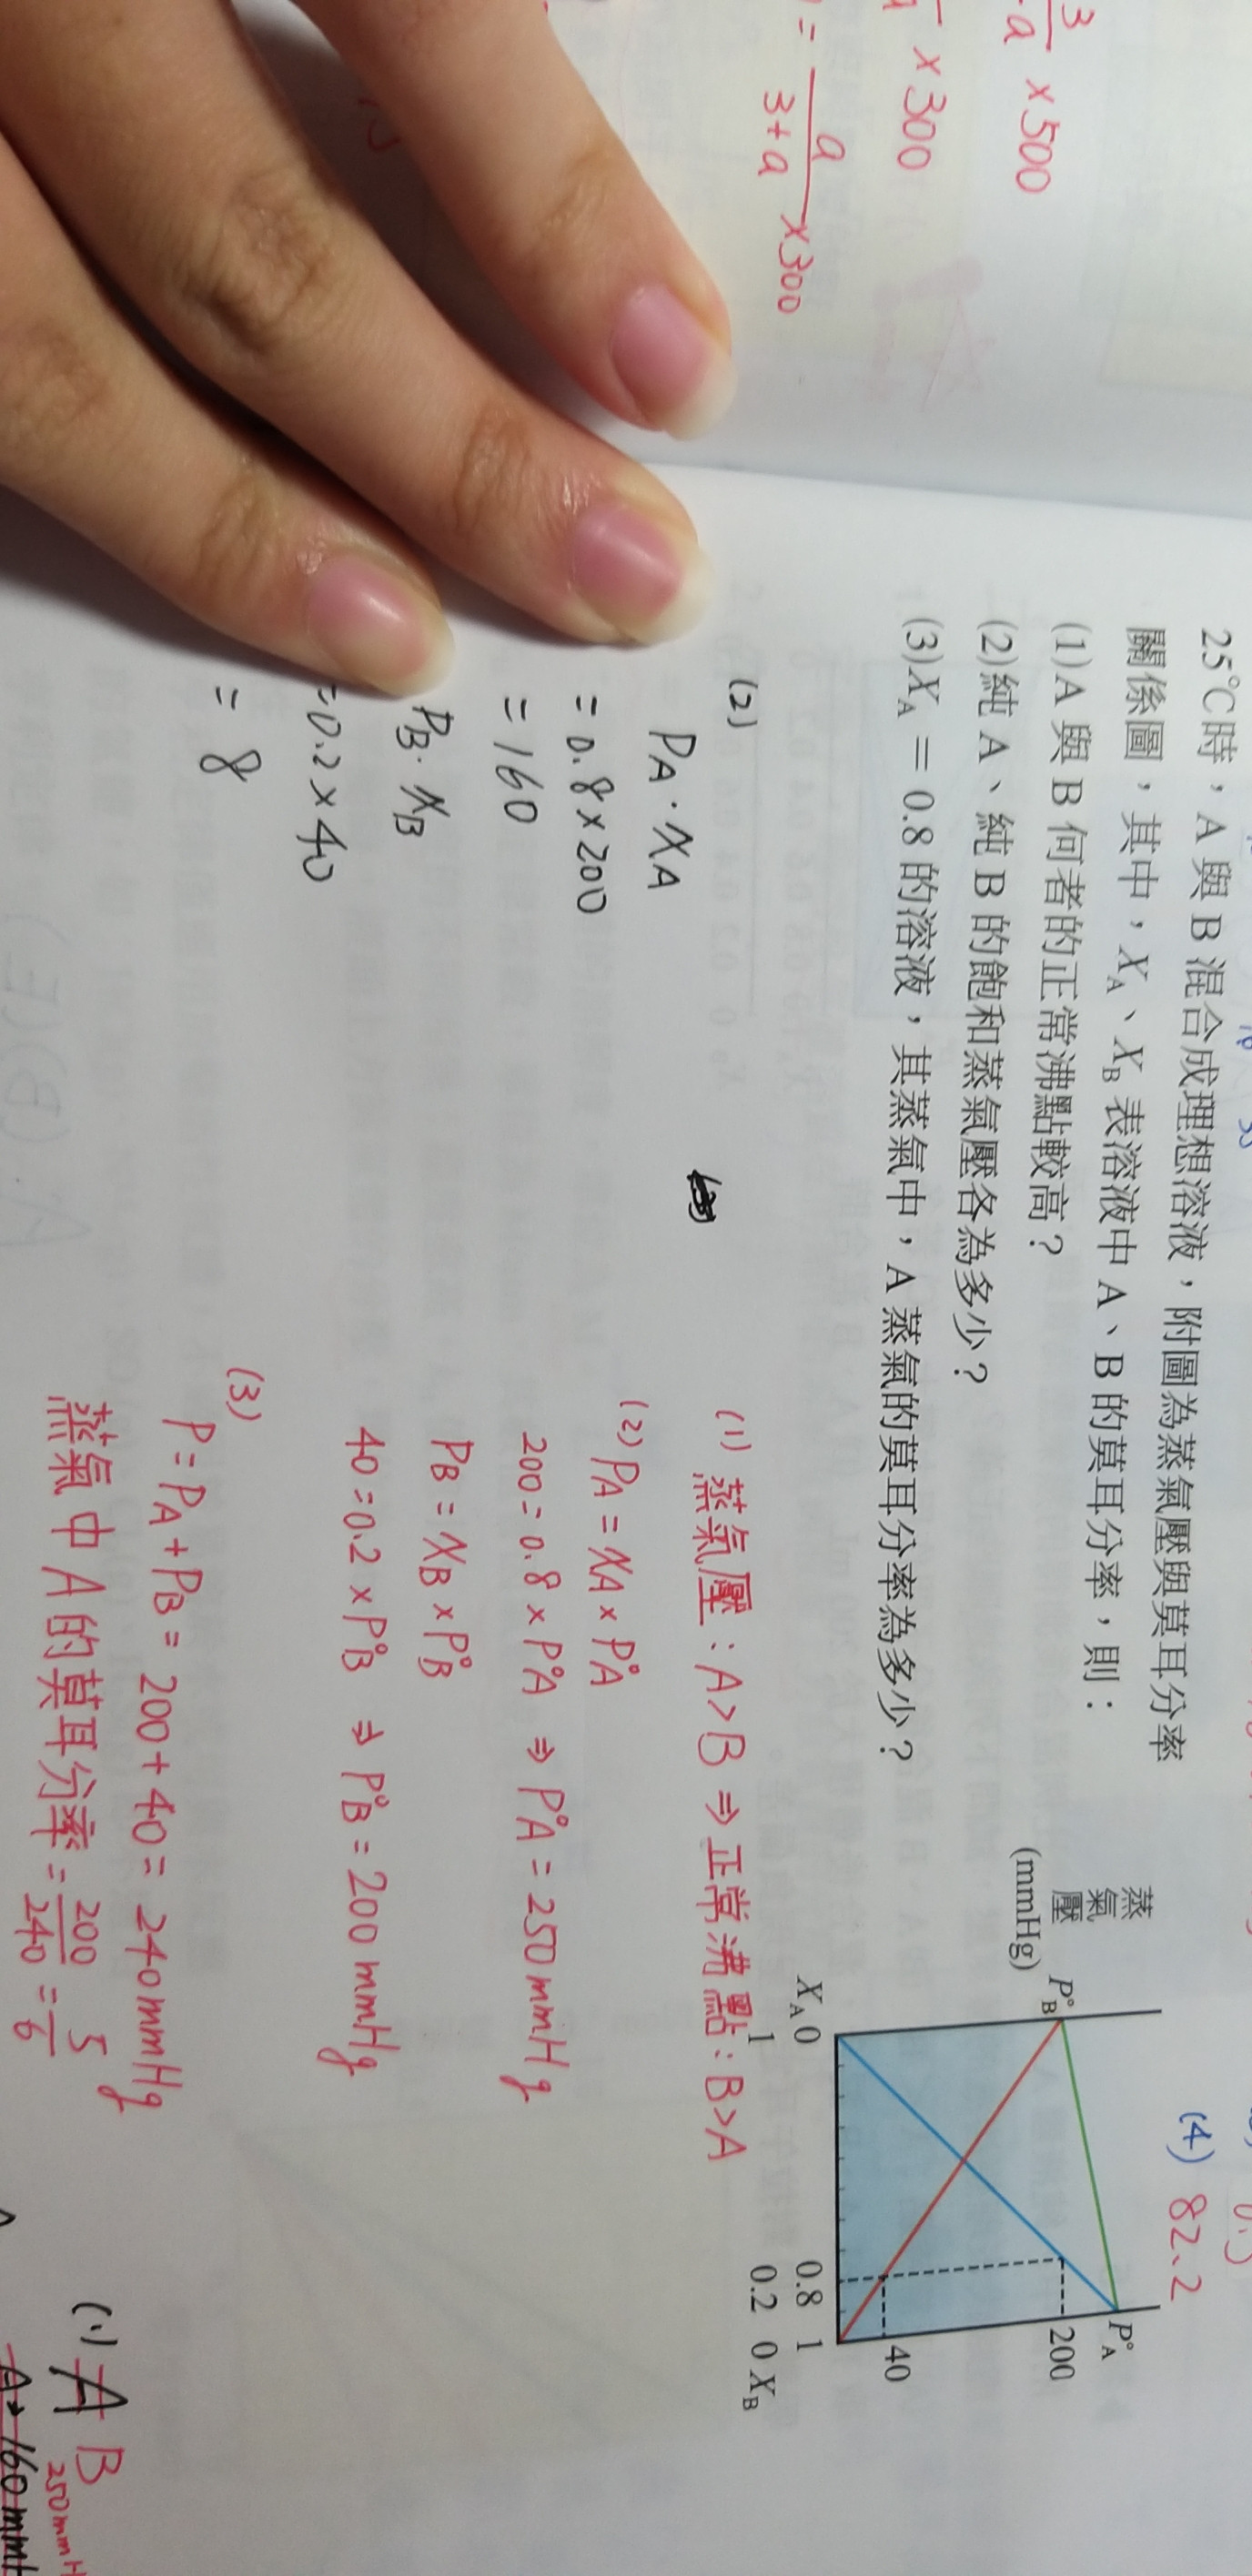 3
a × 500
× 300
= a
3+a × 300
25℃時，A 與 B 混合成理想溶液，附圖為蒸氣壓與莫耳分率
關係圖，其中，X_A、X_B 表溶液中 A、B 的莫耳分率，則：
(1)A 與 B 何者的正常沸點較高？
(2)純 A、純 B 的飽和蒸氣壓各為多少？
(3)X_A = 0.8 的溶液，其蒸氣中，A 蒸氣的莫耳分率為多少？
(4) 82.2
蒸氣壓
(mmHg)
P°B
P°A
200
40
X_A 0 0.8 1
1 0.2 0 X_B
(2)
P_A · X_A
= 0.8 × 200
= 160
P_B · X_B
= 0.2 × 40
= 8
(1) 蒸氣壓：A>B ⇒ 正常沸點：B>A
(2) P_A = X_A × P°A
200 = 0.8 × P°A ⇒ P°A = 250 mmHg
P_B = X_B × P°B
40 = 0.2 × P°B ⇒ P°B = 200 mmHg
(3)
P = P_A + P_B = 200 + 40 = 240 mmHg
蒸氣中 A 的莫耳分率 = 200/240 = 5/6
(1) A B
250 mmH
A→160 mmH